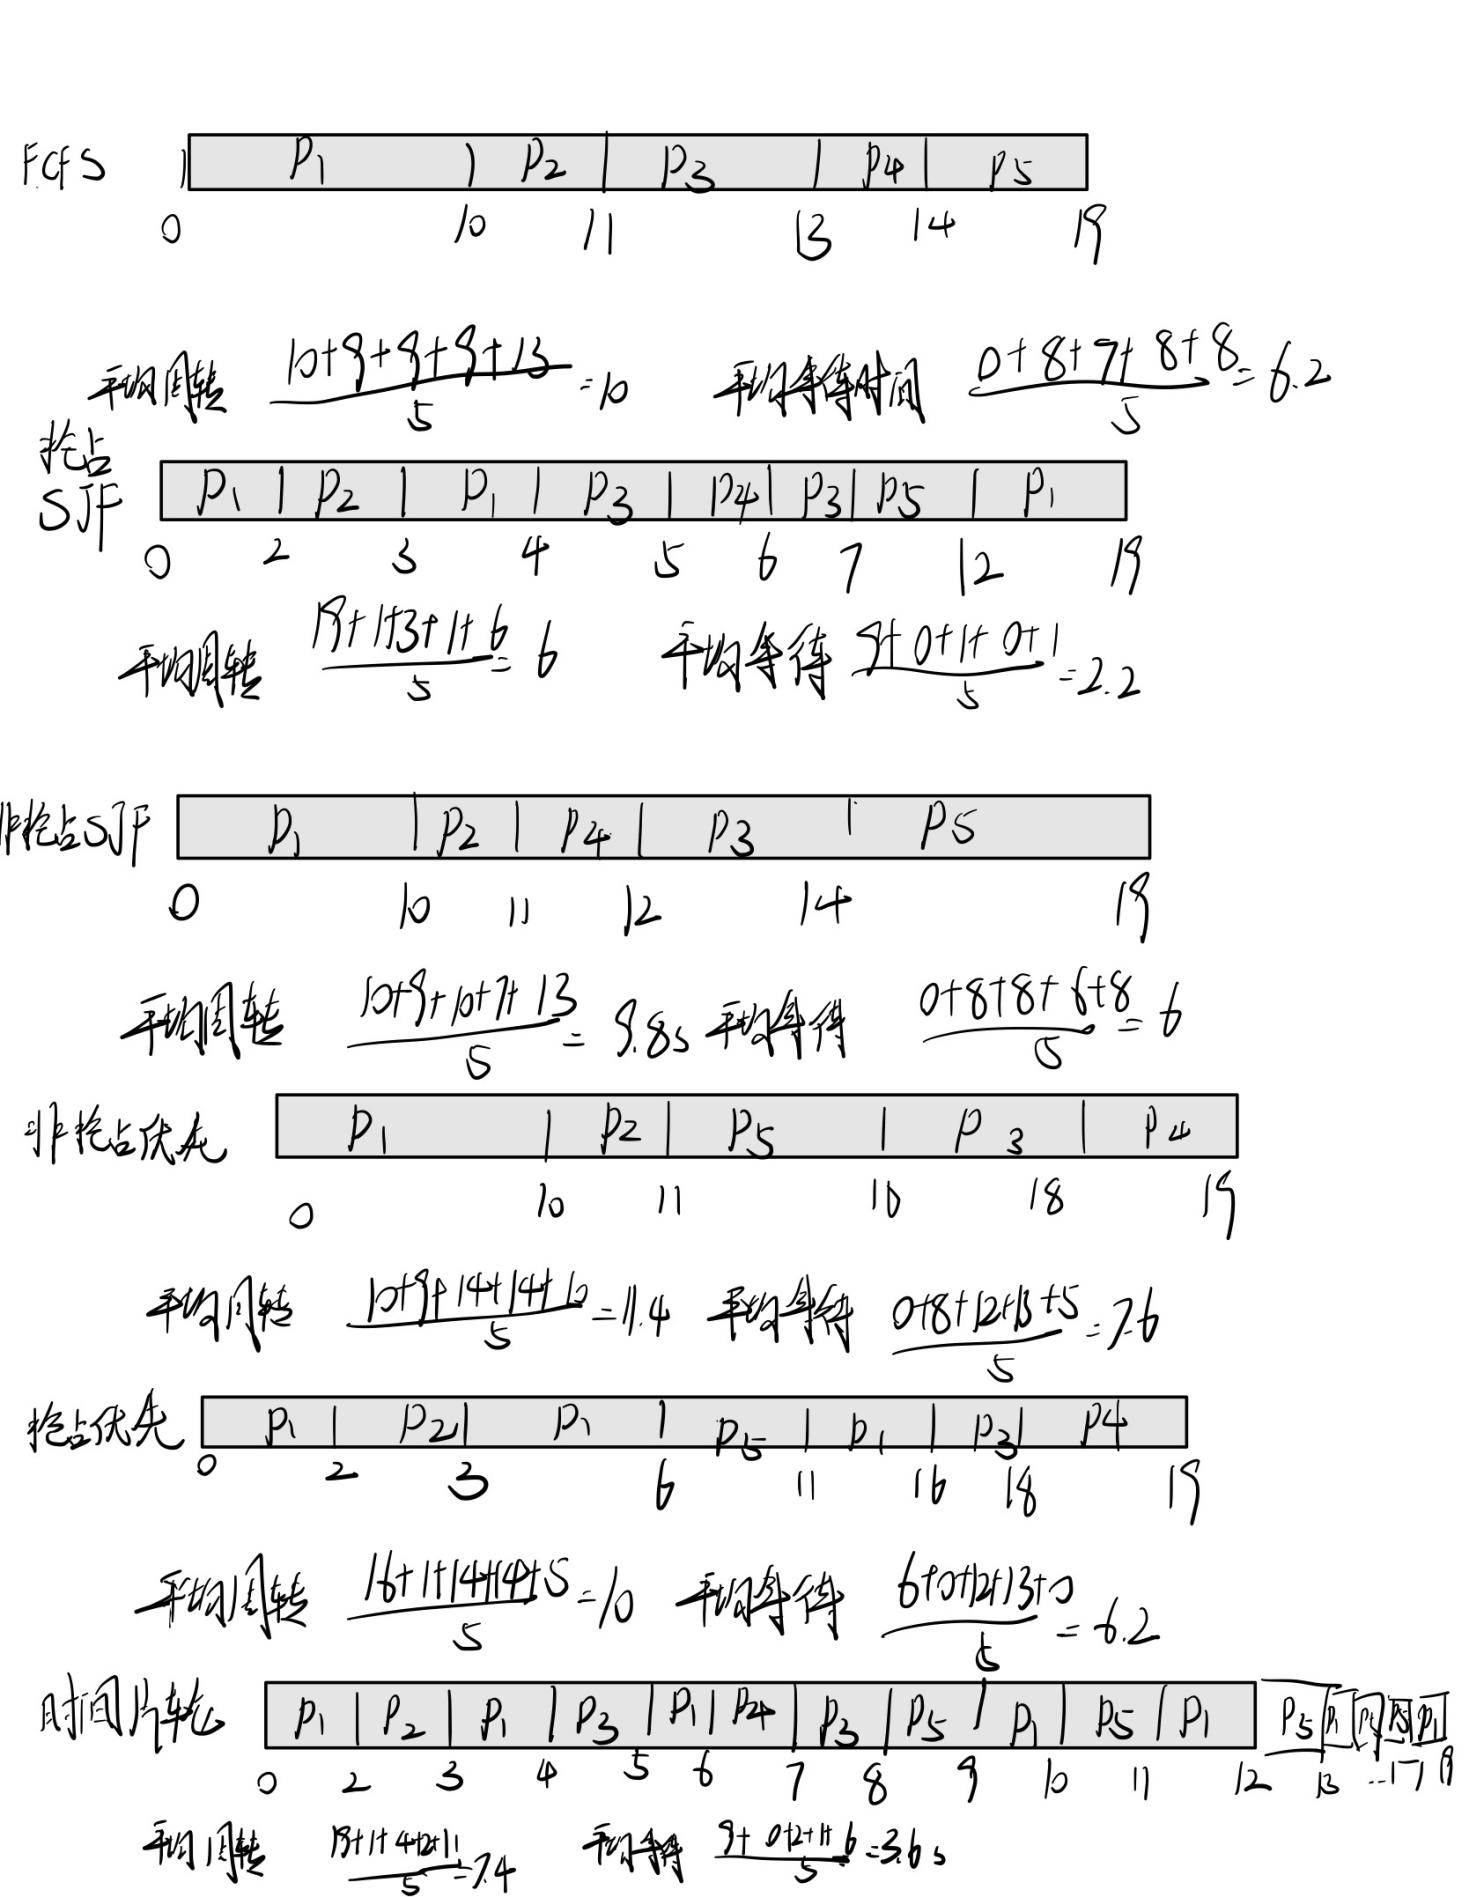 FCFS P1 P2 P3 P4 P5
0 10 11 13 14 19
平均周转 10+9+9+9+13/5 =10 平均等待时间 0+8+7+8+8/5 =6.2
抢占
SJF P1 P2 P1 P3 P4 P3 P5 P1
0 2 3 4 5 6 7 12 19
平均周转 19+1+3+1+6/5 = 6 平均等待 9+0+1+0+1/5 =2.2
非抢占SJF P1 P2 P4 P3 P5
0 10 11 12 14 19
平均周转 10+9+10+7+13/5 = 9.8s 平均等待 0+8+8+6+8/5 = 6
非抢占优先 P1 P2 P5 P3 P4
0 10 11 16 18 19
平均周转 10+9+14+14+10/5 =11.4 平均等待 0+8+12+13+5/5 =7.6
抢占优先 P1 P2 P1 P5 P1 P3 P4
0 2 3 6 11 16 18 19
平均周转 16+1+14+14+5/5 =10 平均等待 6+0+12+13+0/5 =6.2
时间片轮 P1 P2 P1 P3 P1 P4 P3 P5 P1 P5 P1 P5 P1 P5 P1
0 2 3 4 5 6 7 8 9 10 11 12 13 ...17 19
平均周转 19+1+4+2+11/5 =7.4 平均等待 9+0+2+1+6/5 =3.6s